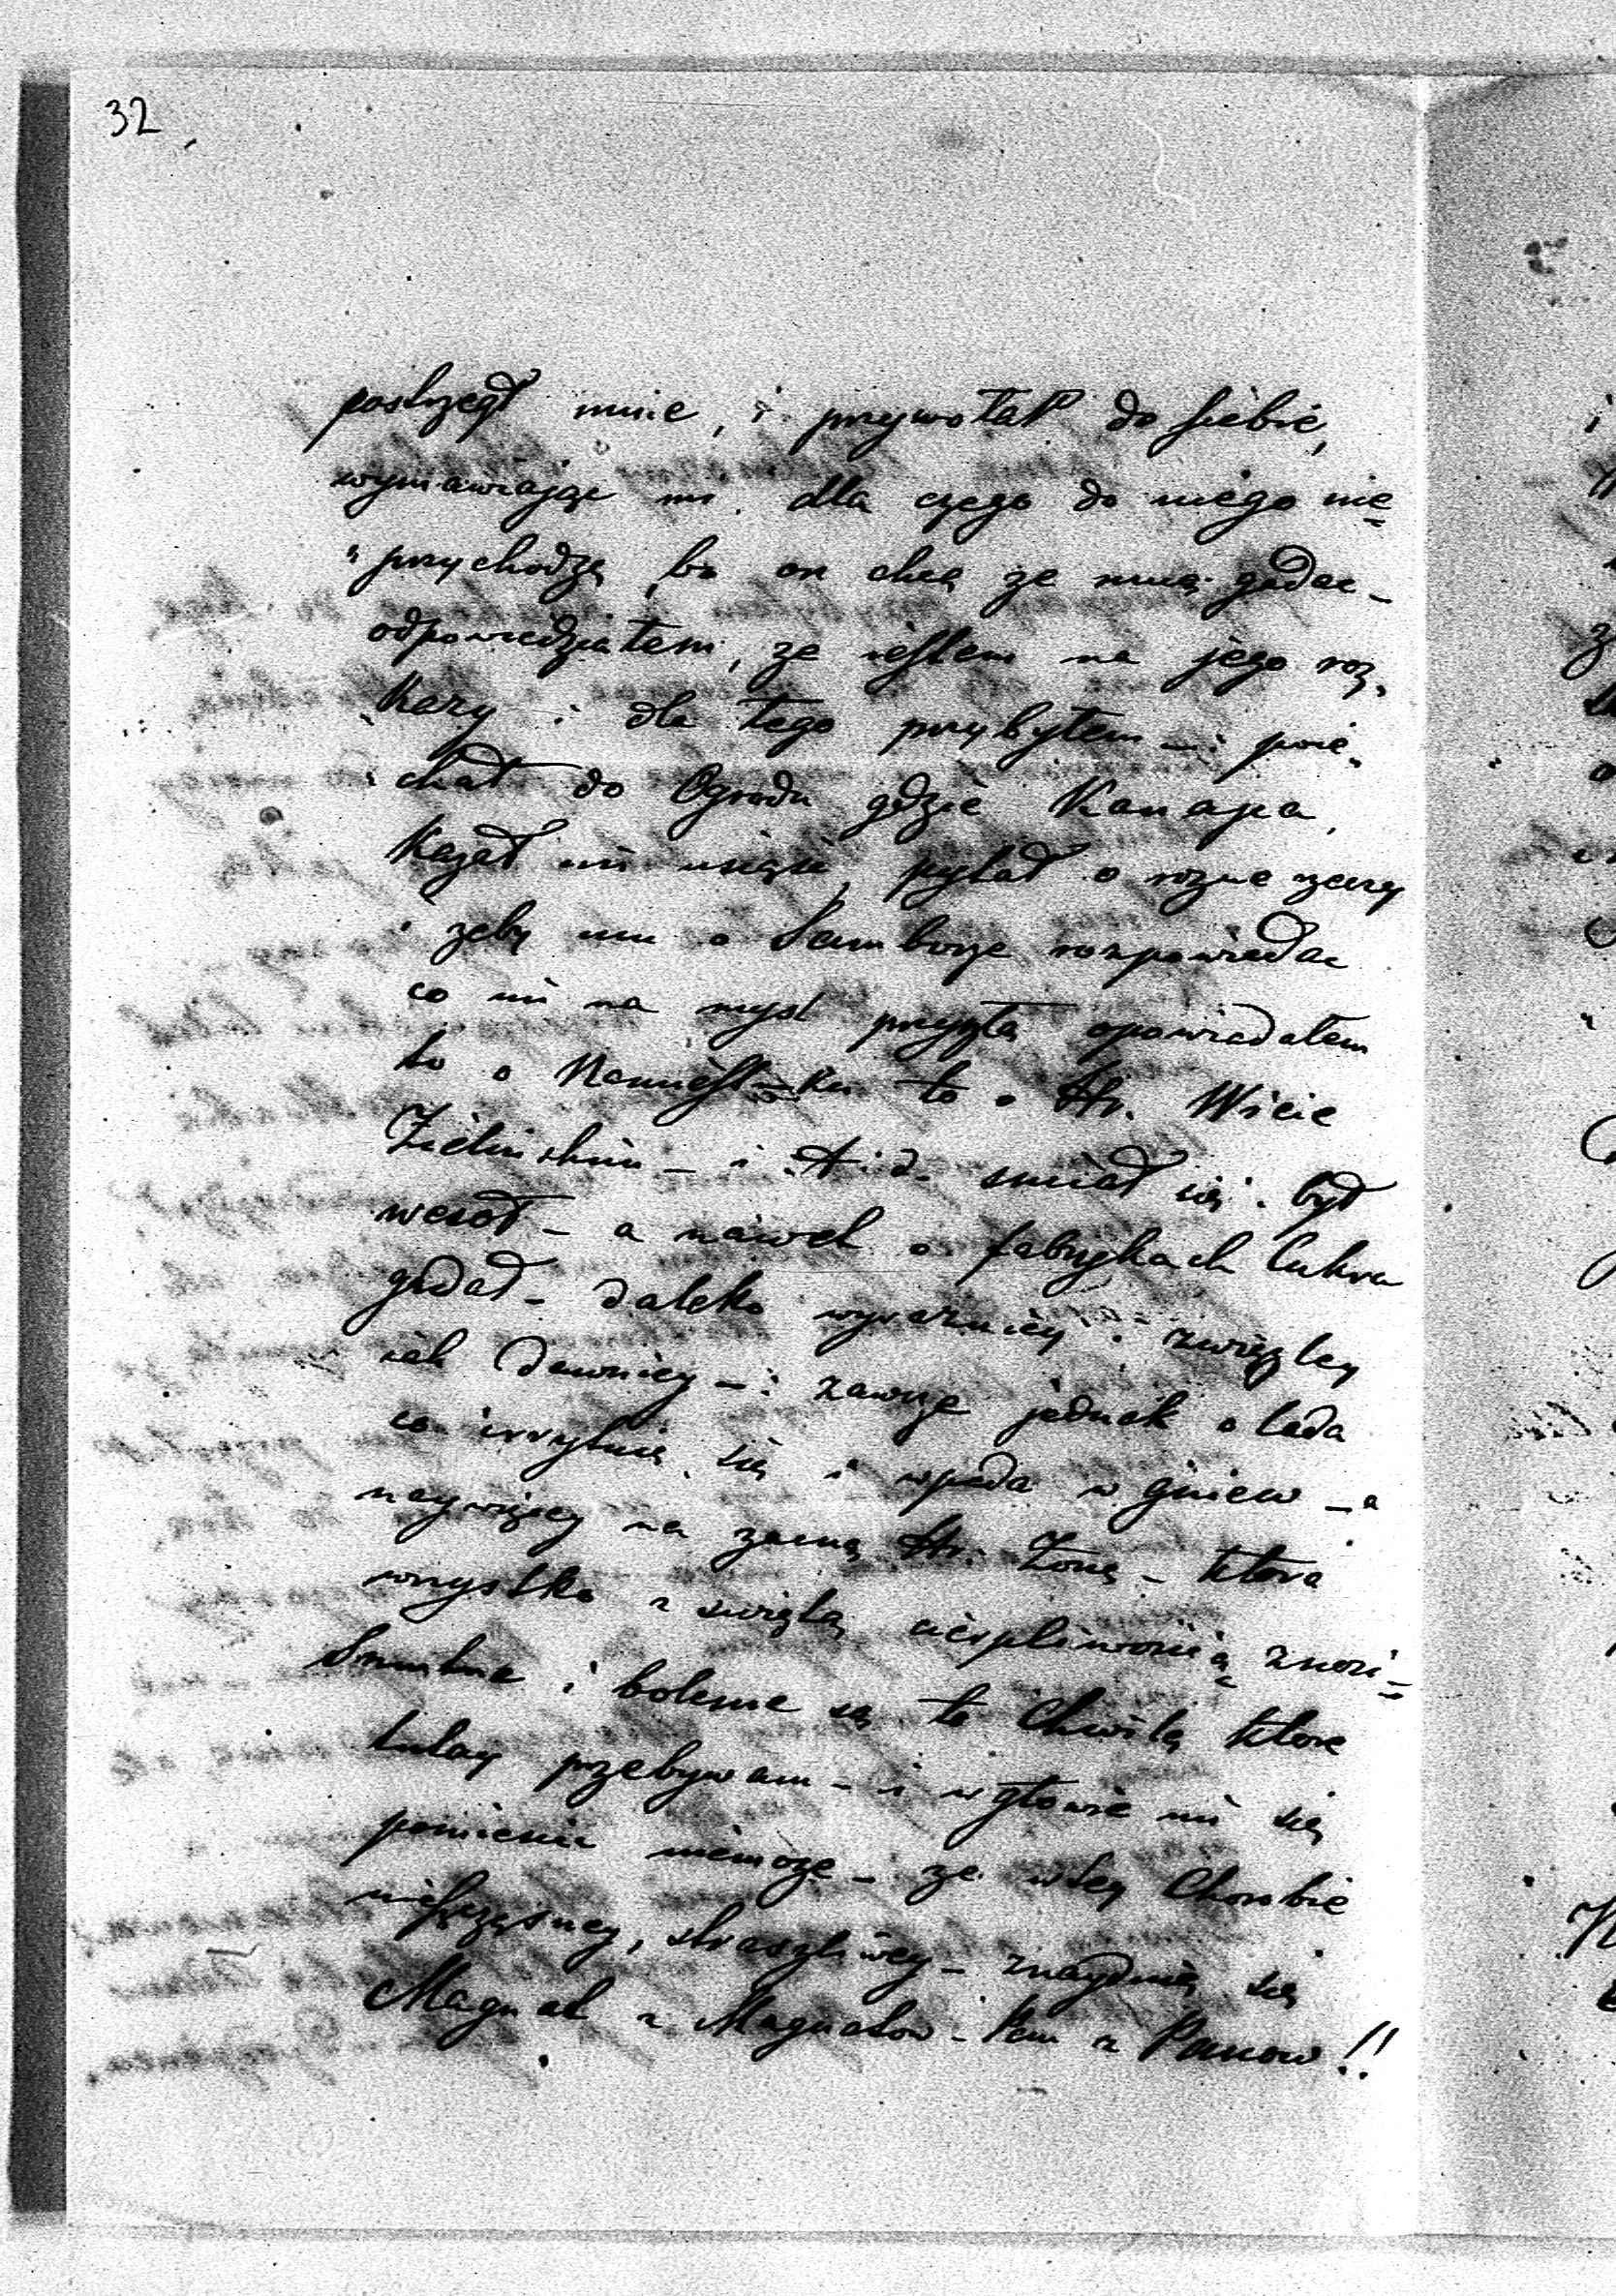 32
postrzegł mnie, i przywołał do siebie,
wymawiając mi dla czego do niego nie
przychodzę, bo on chcę ze mną gadac –
odpowiedziałem, ze iestem na jego roz,
kazy i dla tego przybyłem – i poie,
chał do Ogrodu gdzie Kanapa,
Kazał mi usiąść, pytał o rozne rzeczy
i zeby mu o Samborze rozpowiedac
co mi na mysl przyszło opowiadałem
to o Namiestniku to o Hr. Wicie
Zielinskim – i t. i d. smiał się i był
wesoł – a nawet o fabrykach Cukru
gadał – daleko wyrazniey i zwięzley
iak dawniey – i zawsze jednak o lada
co irrytuie się i wpada w gniew – a
naywięcey na zacną Hr. Zonę – ktora
wszystko z swiętą cierpliwoscią znosi –
Smutne i bolesne są te Chwile, ktore
tutay przebywam – i w głowie mi się
pomiescic niemoze – ze w tey Chorobie
nieszczęsney, straszliwey – znayduie się
Magnat z Magnatow – Pan z Panow!!